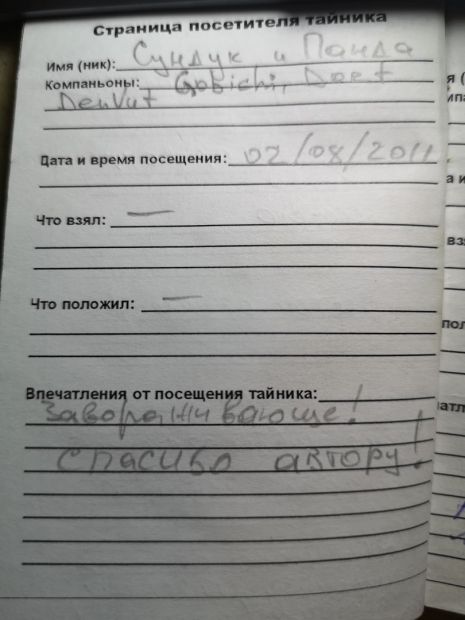 Страница посетителя тайника
Имя (ник): Сундук и Панда
Компаньоны: Gobichi, Dart
DenVut
Дата и время посещения: 07/08/2011
Что взял: —
Что положил: —
Впечатления от посещения тайника:
Завораживающе!
Спасибо автору!